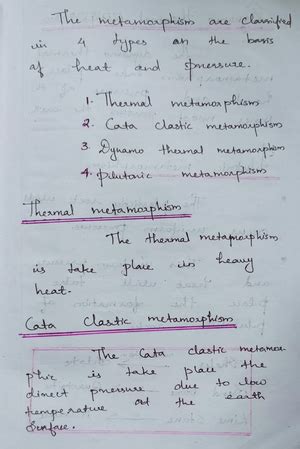 The metamorphism are classified
in 4 types on the basis
of heat and pressure.
1. Thermal metamorphism
2. Cata clastic metamorphism
3. Dynamo thermal metamorphism
4. plutonic metamorphism
Thermal metamorphism
The thermal metamorphism
is take place in heavy
heat.
Cata Clastic metamorphism
The Cata clastic metamor
phic is take place the
direct pressure due to low
temperature at the earth
surface.